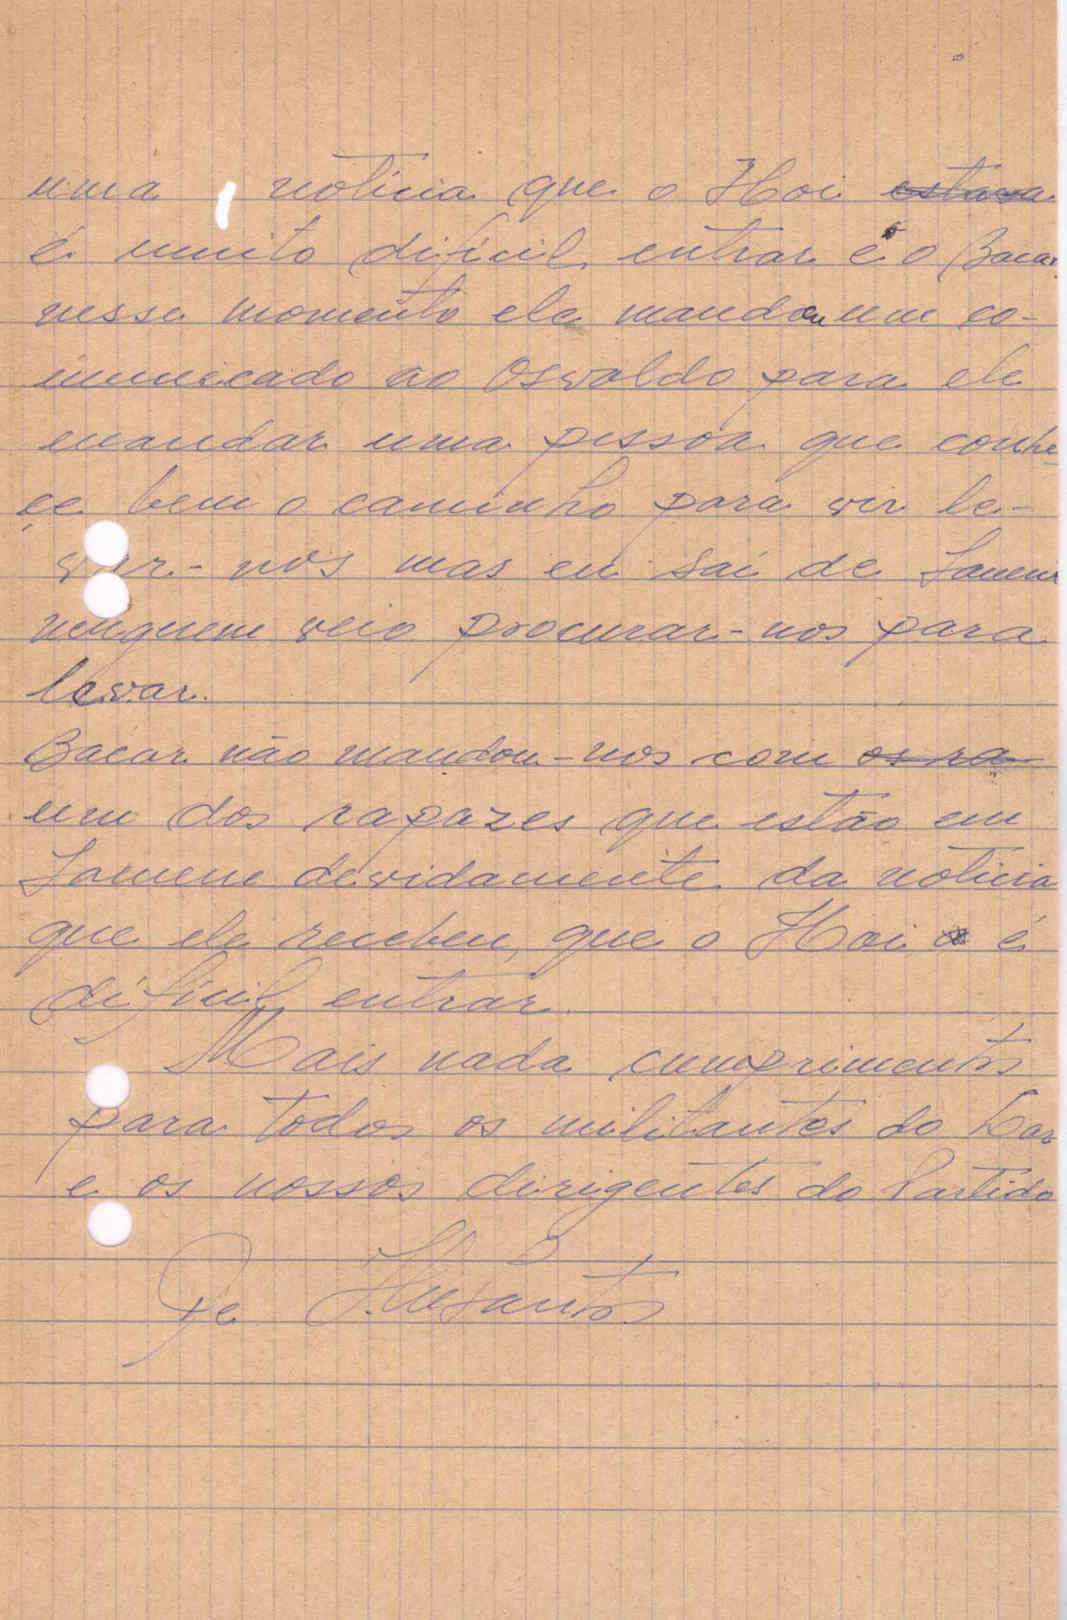 uma noticia que o Hoi ~~estava~~
é muito dificil entrar e o Bacar
nesse momento ele mandou um co-
municado ao Osvaldo para ele
mandar uma pessoa que conhe-
çe bem o caminho para vir le-
var-nós mas eu sai de
ninguem veio procurar-nos para
levar.
Bacar não mandou-nos com ~~os ra~~
um dos rapazes que estão em
devidamente da noticia
que ele recebeu, que o Hoi é
dificil entrar.
Mais nada cumprimentos
para todos os militantes do Lar
e os nossos dirigentes do Partido
De Santos